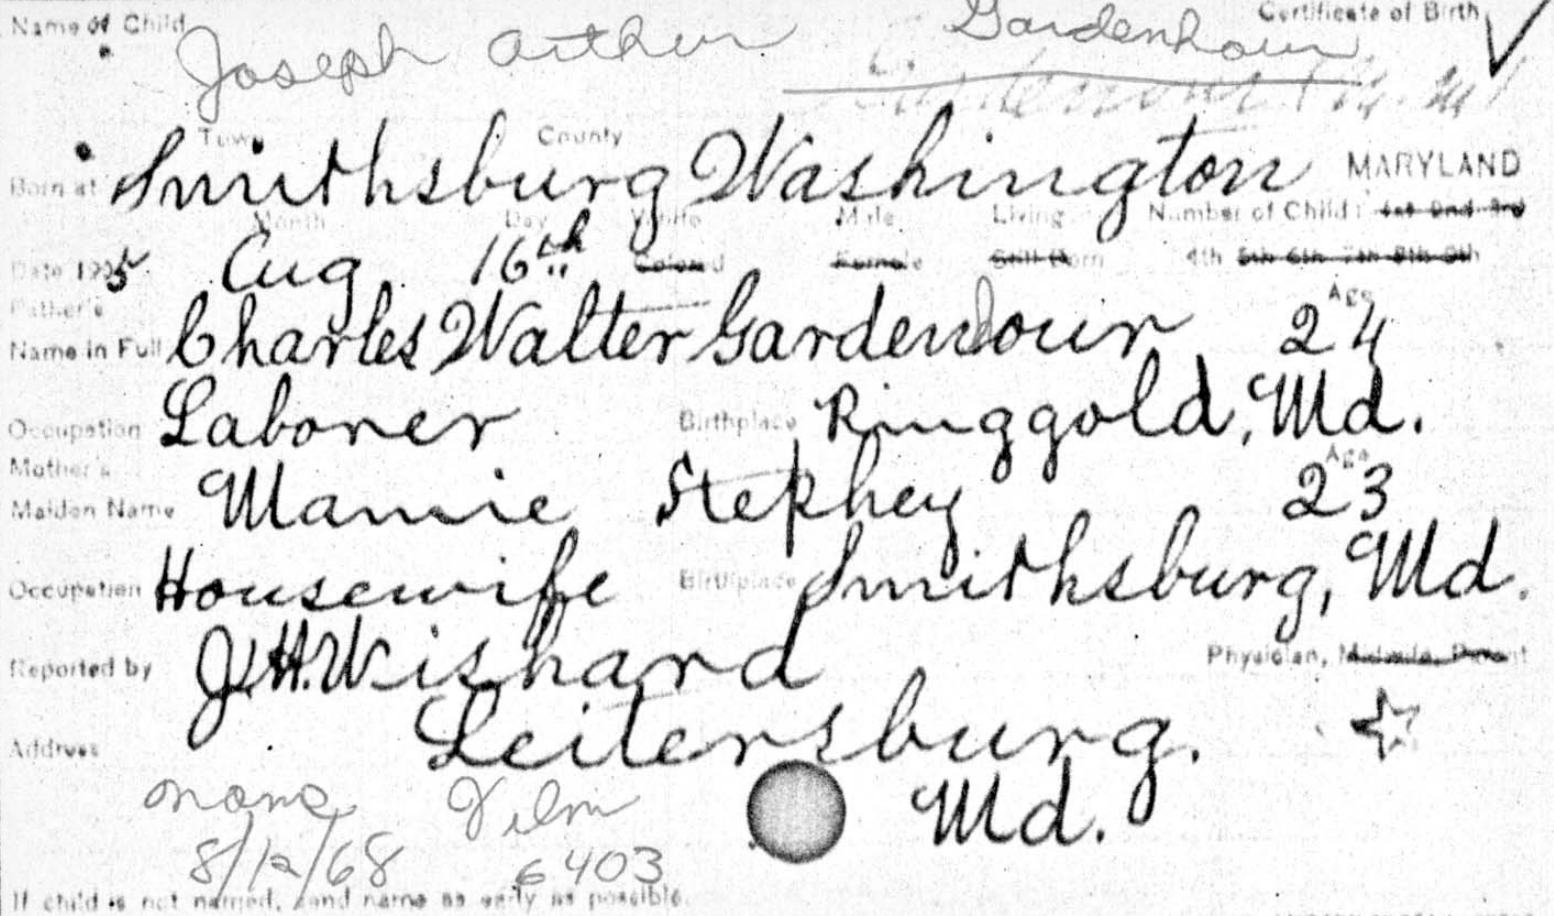 Name of Child Joseph Arthur Gardenhour Certificate of Birth
Town County
Born at Smithsburg Washington MARYLAND
Month Day White Male Living Number of Child: 1st 2nd 3rd
Date 1905 Aug 16th Colored Female Still Born 4th 5th 6th 7th 8th 9th
Father's Age
Name in Full Charles Walter Gardenhour 24
Occupation Laborer Birthplace Ringgold, Md.
Mother's Age
Maiden Name Mamie Stephey 23
Occupation Housewife Birthplace Smithsburg, Md.
Reported by J.H. Wishard Physician, Midwife, Parent
Address Leitersburg.
Md.
8/12/68 6403
If child is not named, send name as early as possible.